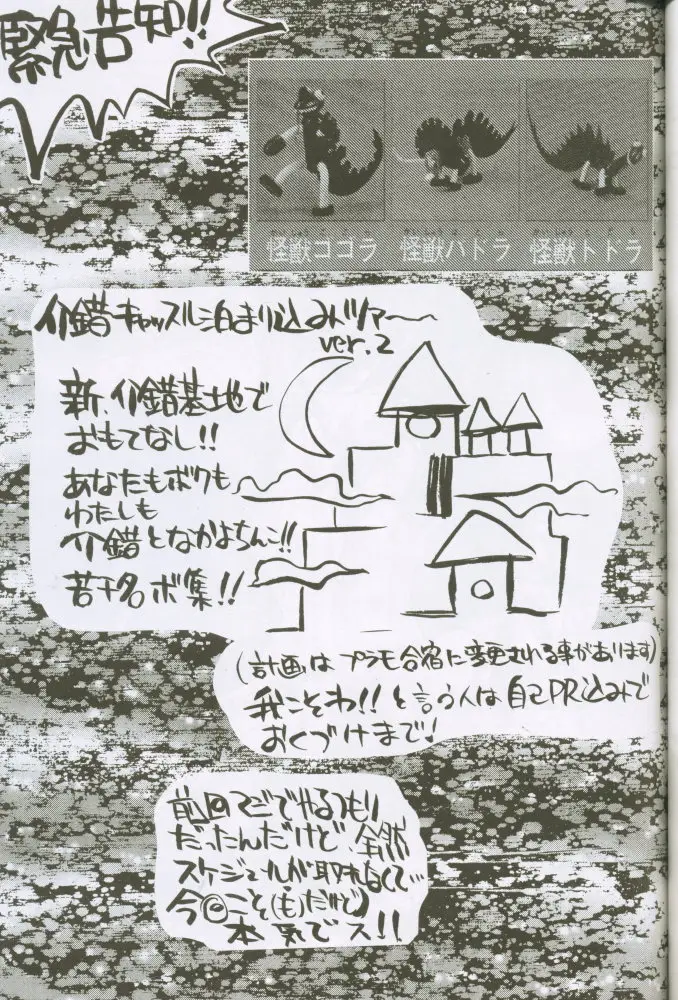 緊急告知!!
怪獣ゴゴラ 怪獣ハドラ 怪獣トドラ
介錯キャッスル泊まり込みツアー〜
ver.2
新、介錯基地で
おもてなし!!
あなたもボクも
わたしも
介錯となかよちんこ!!
若干名ボ集!!
(計画はプラモ合宿に変更される事があります)
我こそわ!!と言う人は自己PR込みで
おくづけまで!
前回マジでやるつもり
だったんだけど全然
スケジュールが取れなくて…
今回こそ(も)だけど)
本気でス!!